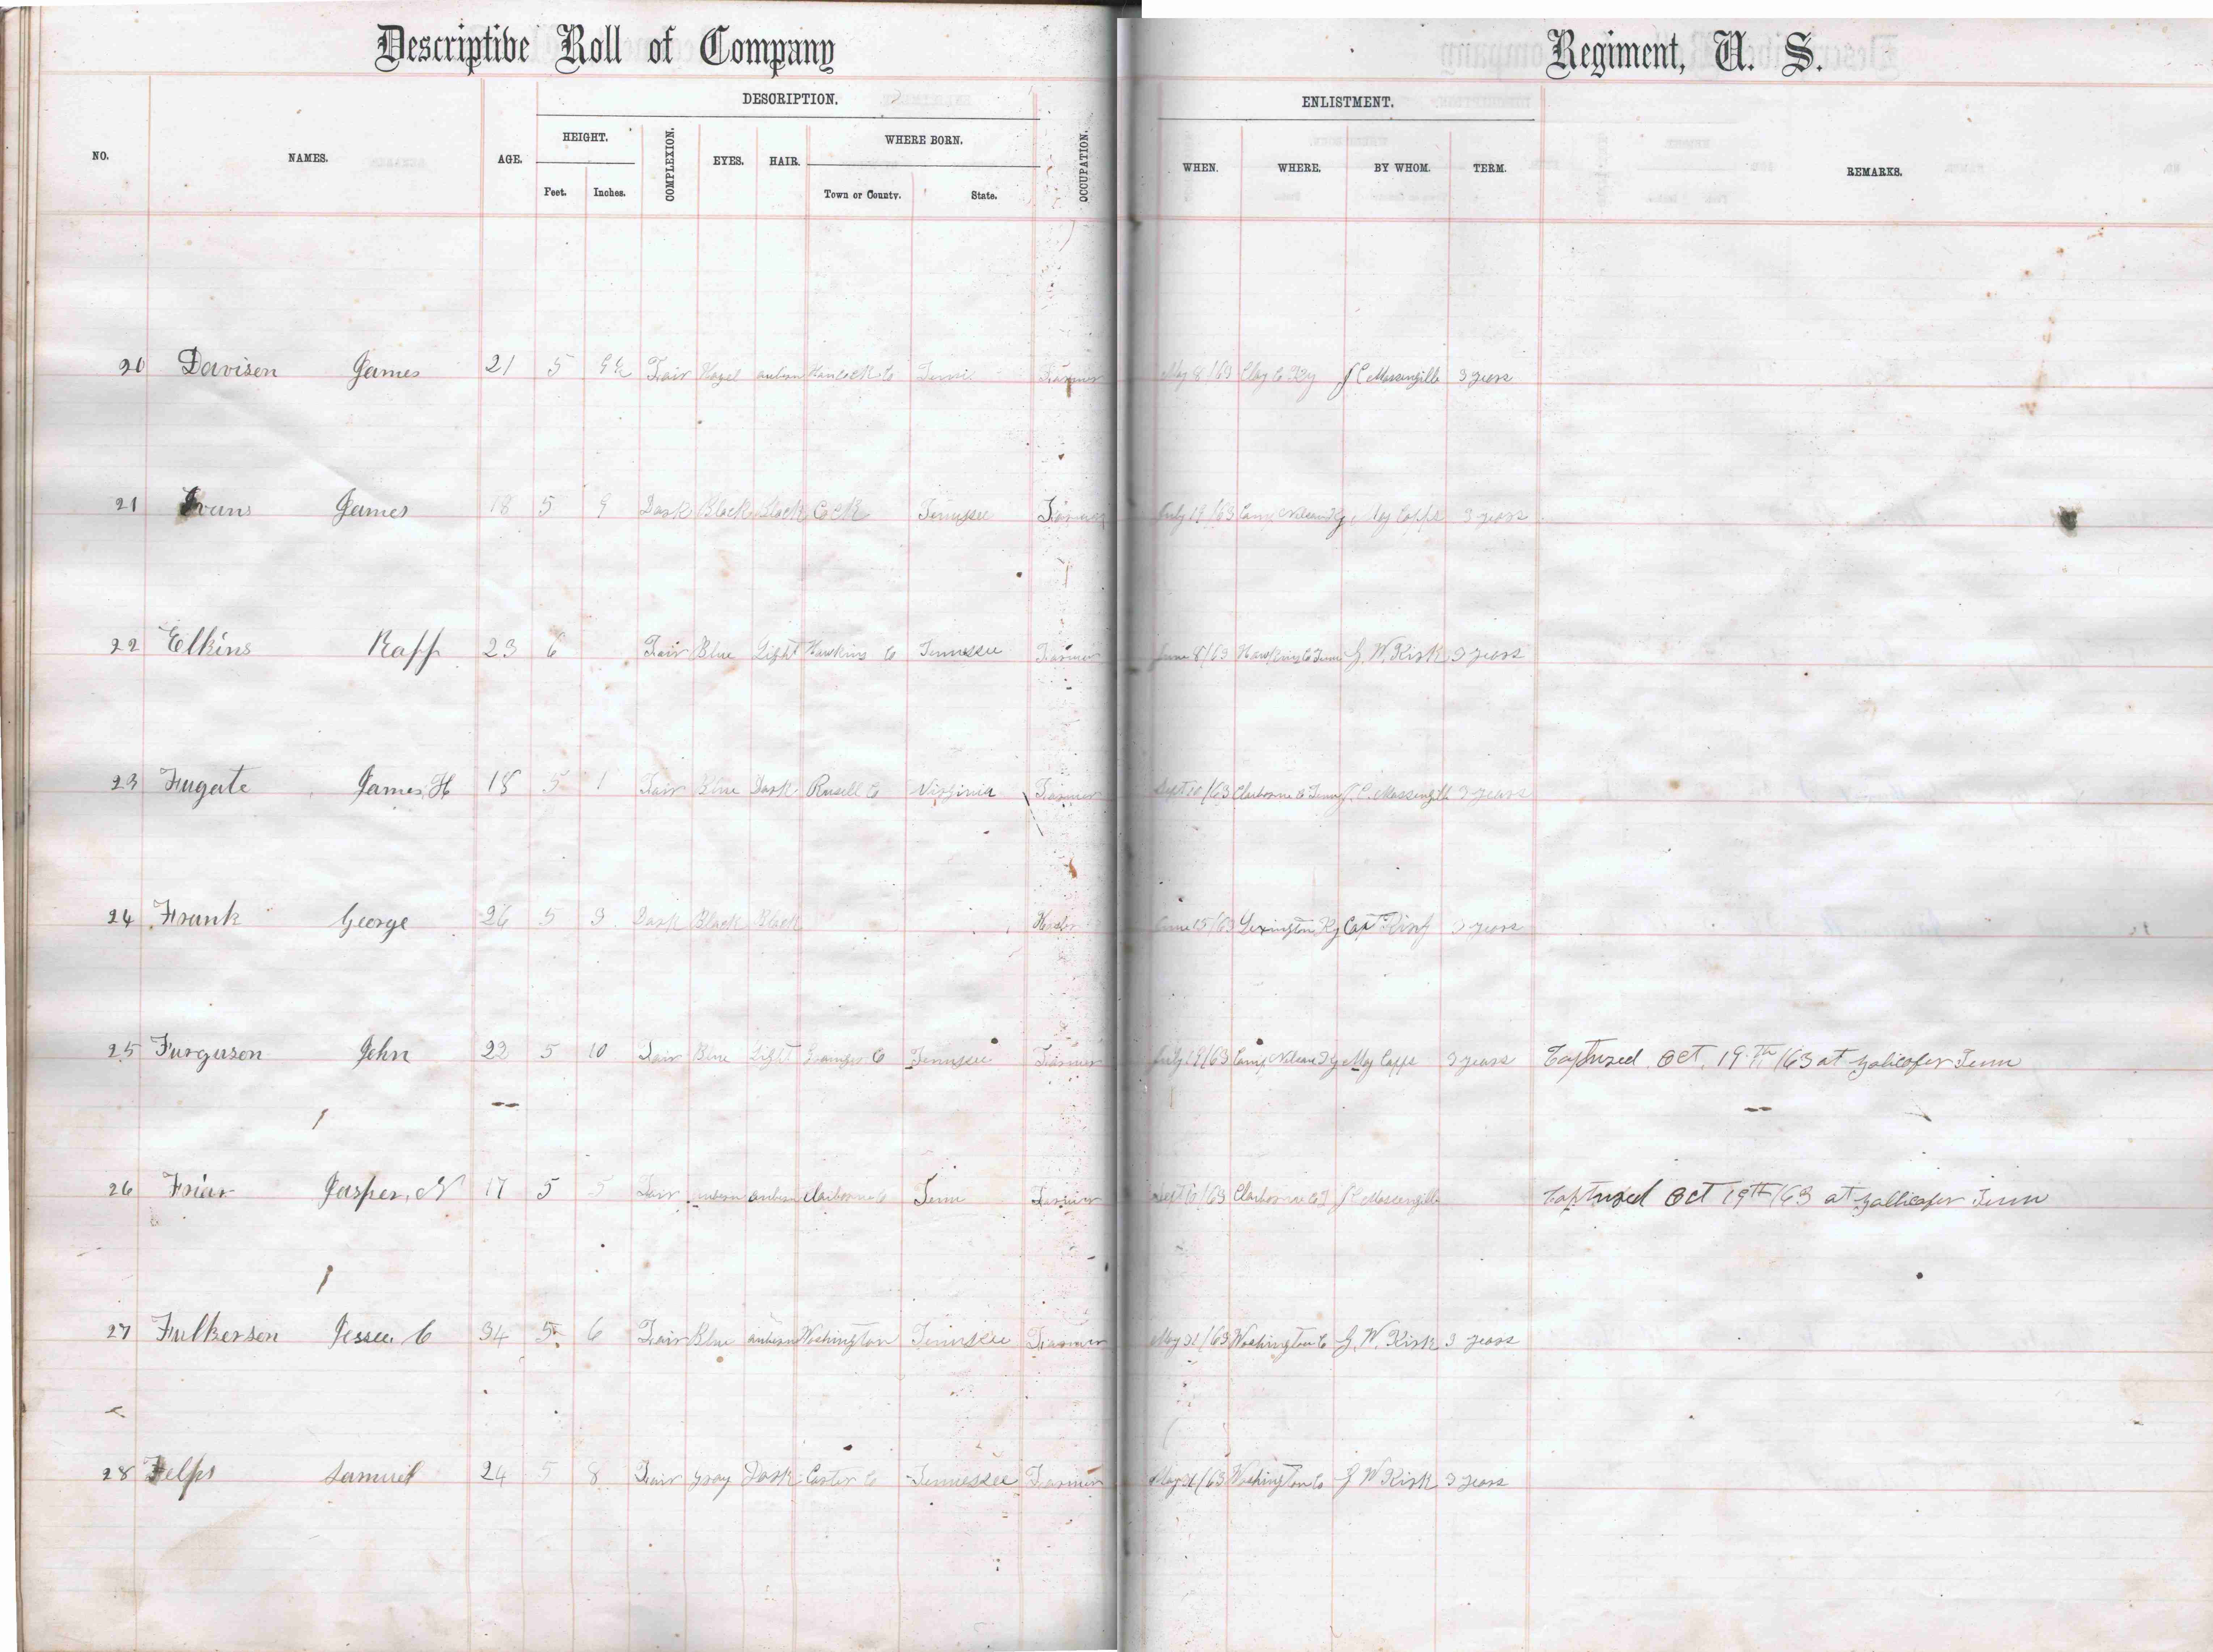 Descriptive Roll of Company Regiment, U. S.
DESCRIPTION. ENLISTMENT.
HEIGHT. WHERE BORN.
NO. NAMES. AGE. COMPLEXION. EYES. HAIR. OCCUPATION. WHEN. WHERE. BY WHOM. TERM. REMARKS.
Feet. Inches. Town or County. State.
20 Davisen James 21 5 Fair Hazel auburn Hancock Co Farmer May 8/63 Clay Co Ky J C Massengille 3 years
21 Evans James 18 5 9 Dark Black Black Cock Tennssee Farmer July 19/63 Camp Nelson Ky Maj Capps 3 years
22 Elkins Raff 23 6 Fair Blue Light Hawkins Co Tennessee Farmer June 8/63 Hawkins Co Tenn G. W. Kirk 3 years
23 Fugate James, H 18 5 1 Fair Blue Dark Rusell Co Virginia Farmer Sept 10/63 Claiborne Co Tenn J. C. Massengill 3 years
24 Frank George 26 5 3 Dark Black Black June 15/63 Lexington Ky Capt 3 years
25 Furgusen John 22 5 10 Fair Blue Light Grainger Co Tennssee Farmer July 29/63 Camp Nelson Ky Maj Capps 3 years Captured Oct, 19.th/63 at Zalicofer Tenn
26 Friar Jasper, N 17 5 5 Fair auburn auburn Claiborne Co Tenn Farmer Sept 10/63 Claiborne Co T J C Massengille Captured Oct 19th/63 at Zallicofer Tenn
27 Fulkersen Jessee C 34 5 6 Fair Blue auburn Washington Tennssee Farmer May 31/63 Washington Co G. W. Kirk 3 years
28 Felps Samuel 24 5 8 Fair Gray Dark Carter Co Tennessee Farmer May 31/63 Washington Co G W Kirk 3 years